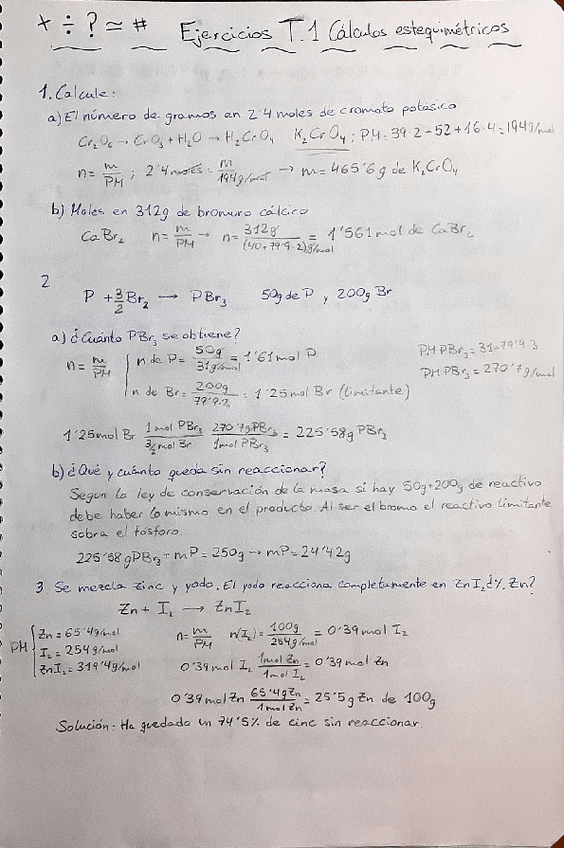 + ÷ ? ≃ # Ejercicios T.1 Cálculos estequimétricos
1. Calcule:
a) El número de gramos en 2'4 moles de cromato potásico
Cr₂O₆ → CrO₃ + H₂O → H₂CrO₄ K₂CrO₄ ; PM = 39·2 + 52 + 16·4 = 194 g/mol
n = m/PM ; 2'4 moles = m/194 g/mol → m = 465'6 g de K₂CrO₄
b) Moles en 312g de bromuro cálcico
CaBr₂ n = m/PM → n = 312g/(40+79'9·2)g/mol = 1'561 mol de CaBr₂
2
P + 3/2 Br₂ → PBr₃ 50g de P y 200g Br
a) ¿Cuánto PBr₃ se obtiene?
n = m/PM { n de P = 50g/31g/mol = 1'61 mol P
n de Br = 200g/79'9·2 = 1'25 mol Br (limitante)
PM PBr₃ = 31+79'9·3
PM PBr₃ = 270'7 g/mol
1'25 mol Br 1 mol PBr₃/3/2 mol Br 270'7g PBr₃/1 mol PBr₃ = 225'58g PBr₃
b) ¿Qué y cuánto queda sin reaccionar?
Segun la ley de conservación de la masa si hay 50g+200g de reactivo
debe haber lo mismo en el producto. Al ser el bromo el reactivo limitante
sobra el fósforo.
225'58 g PBr₃ + mP = 250g → mP = 24'42g
3 Se mezcla zinc y yodo. El yodo reacciona completamente en ZnI₂ ¿% Zn?
Zn + I₂ → ZnI₂
PM { Zn = 65'4 g/mol
I₂ = 254 g/mol
ZnI₂ = 319'4 g/mol
n = m/PM n(I₂) = 100g/254g/mol = 0'39 mol I₂
0'39 mol I₂ 1mol Zn/1mol I₂ = 0'39 mol Zn
0'39 mol Zn 65'4g Zn/1mol Zn = 25'5g Zn de 100g
Solución: Ha quedado un 74'5% de cinc sin reaccionar.